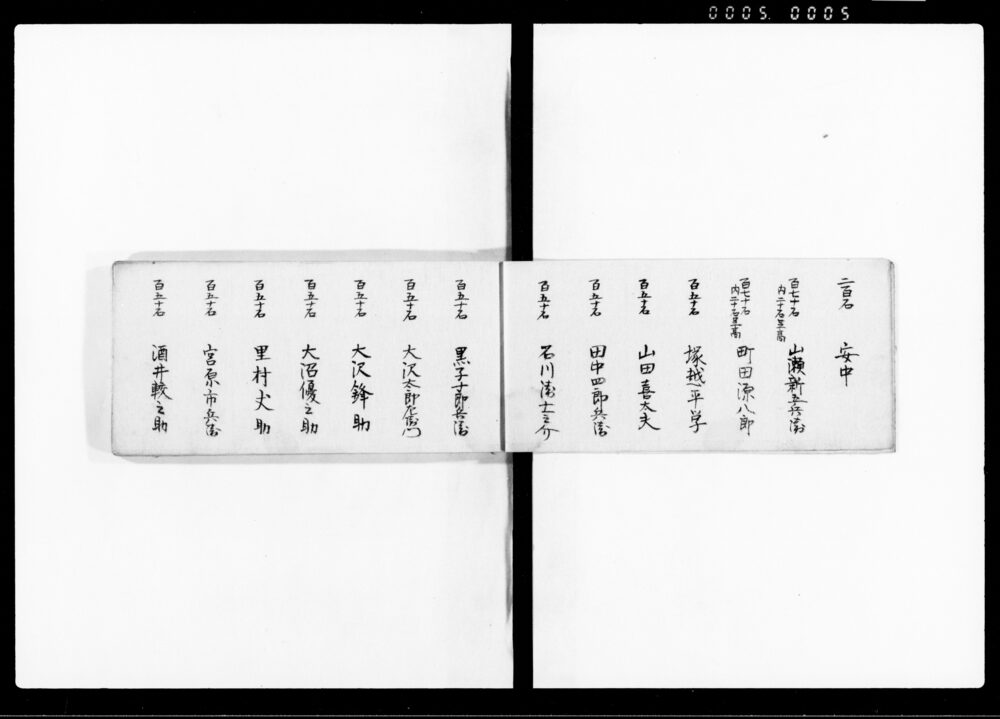 0005. 0005
二百石 安中
百七十石 内二十石足高 山瀬新五兵衛
百七十石 内二十石足高 町田源八郎
百五十石 塚越平学
百五十石 山田喜太夫
百五十石 田中四郎兵衛
百五十石 石川士之介
百五十石 黒子十郎兵衛
百五十石 大沢太郎左衛門
百五十石 大沢鋒助
百五十石 大沼優之助
百五十石 里村丈助
百五十石 宮原市兵衛
百五十石 酒井較之助